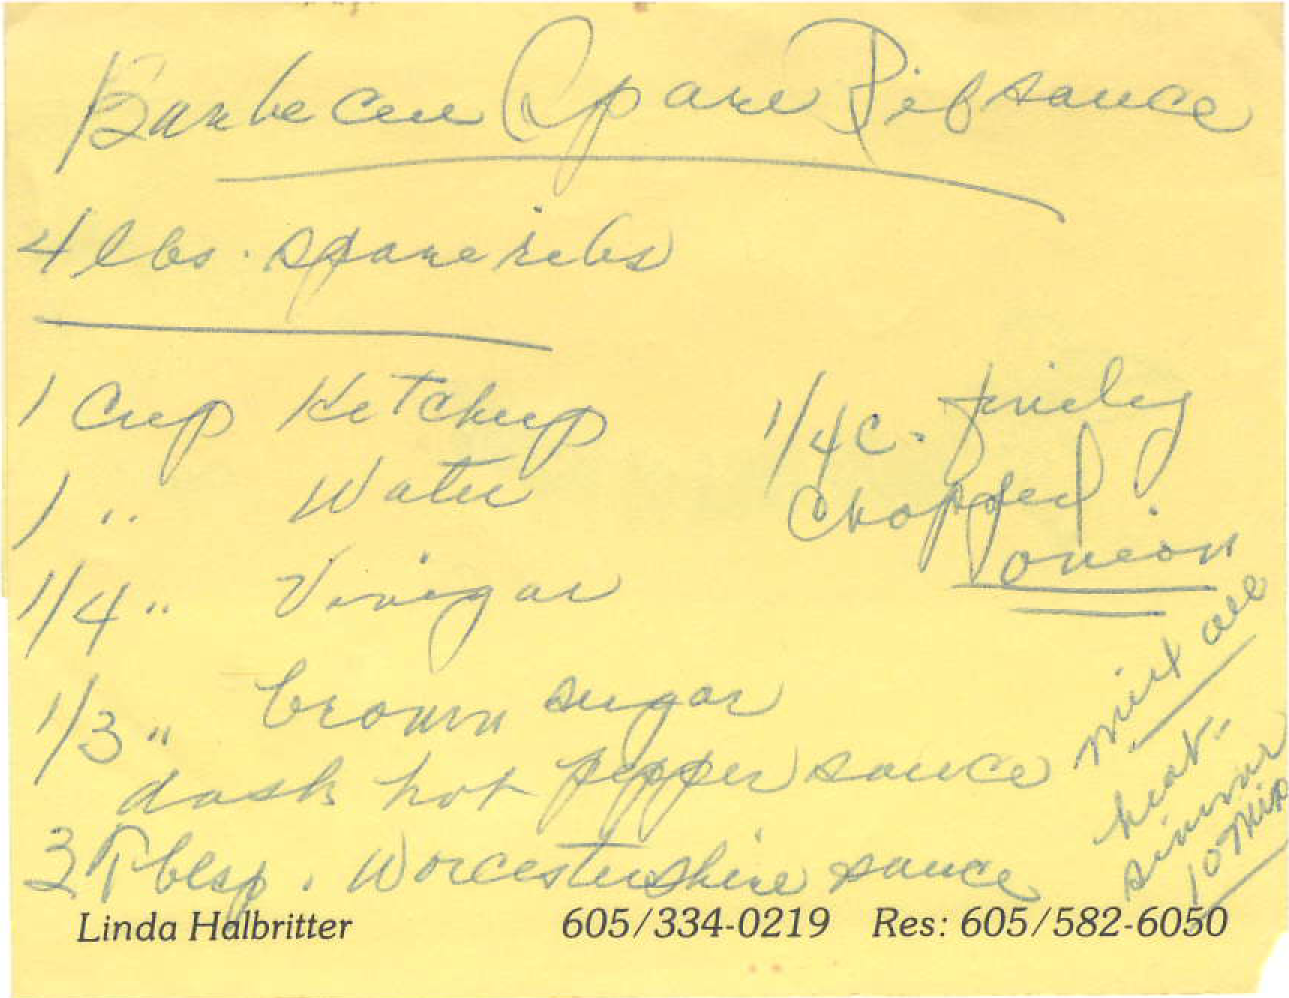 Barbecue Spare Rib sauce
4 lbs. spare ribs
1 Cup Ketchup
1 " Water
1/4 " Vinigar
1/3 " brown sugar
dash hot pepper sauce
3 Tblsp. Worcestershire sauce
1/4 c. finely
Chopped
onion
mix all
heat
simmer
10 min
Linda Halbritter 605/334-0219 Res: 605/582-6050